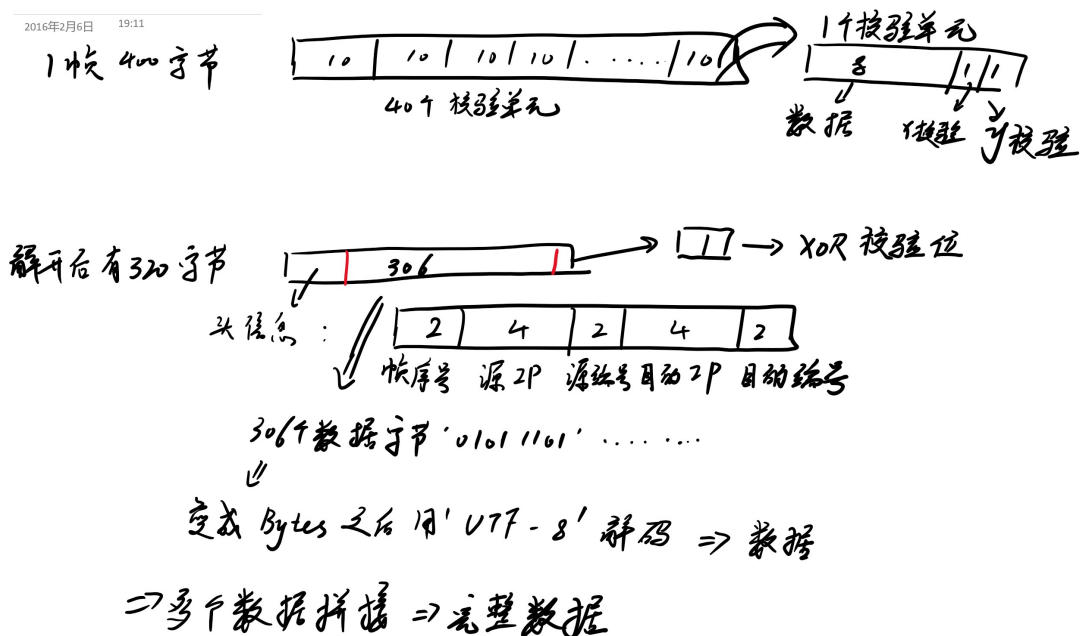 2016年2月6日 19:11
1帧 400字节
10 10 10 10 ..... 10
40个校验单元
1个校验单元
8 1 1
数据 x校验 y校验
解开后有320字节
306
1 → XOR 校验位
头信息:
2 4 2 4 2
帧序号 源IP 源端号 目的IP 目的端号
306个数据字节 '01011101' ........
变成 Bytes 之后 用'UTF-8' 解码 => 数据
=> 多个数据拼接 => 完整数据